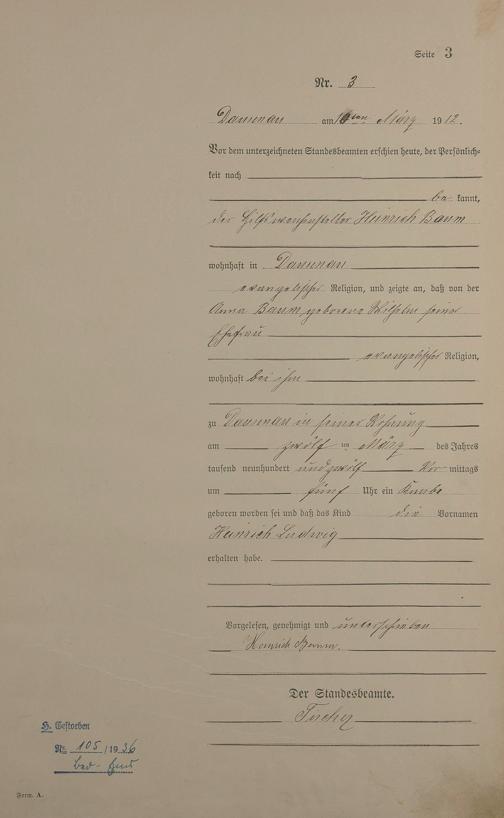 Seite 3
Nr. 3
Dausenau am 16ten März 1912.
Vor dem unterzeichneten Standesbeamten erschien heute, der Persönlich-
keit nach
be kannt,
der Hilfsweichensteller Heinrich Baum
wohnhaft in Dausenau
evangelischer Religion, und zeigte an, daß von der
Anna Baum geborene Wilhelm seiner
Ehefrau
evangelischer Religion,
wohnhaft bei ihm
zu Dausenau in seiner Wohnung
am zwölf ten März des Jahres
tausend neunhundert und zwölf Vor mittags
um fünf Uhr ein Knabe
geboren worden sei und daß das Kind die Vornamen
Heinrich Ludwig
erhalten habe.
Vorgelesen, genehmigt und unterschrieben
Heinrich Baum.
Der Standesbeamte.
H. Gestorben
Nr. 105/1936
Form. A.